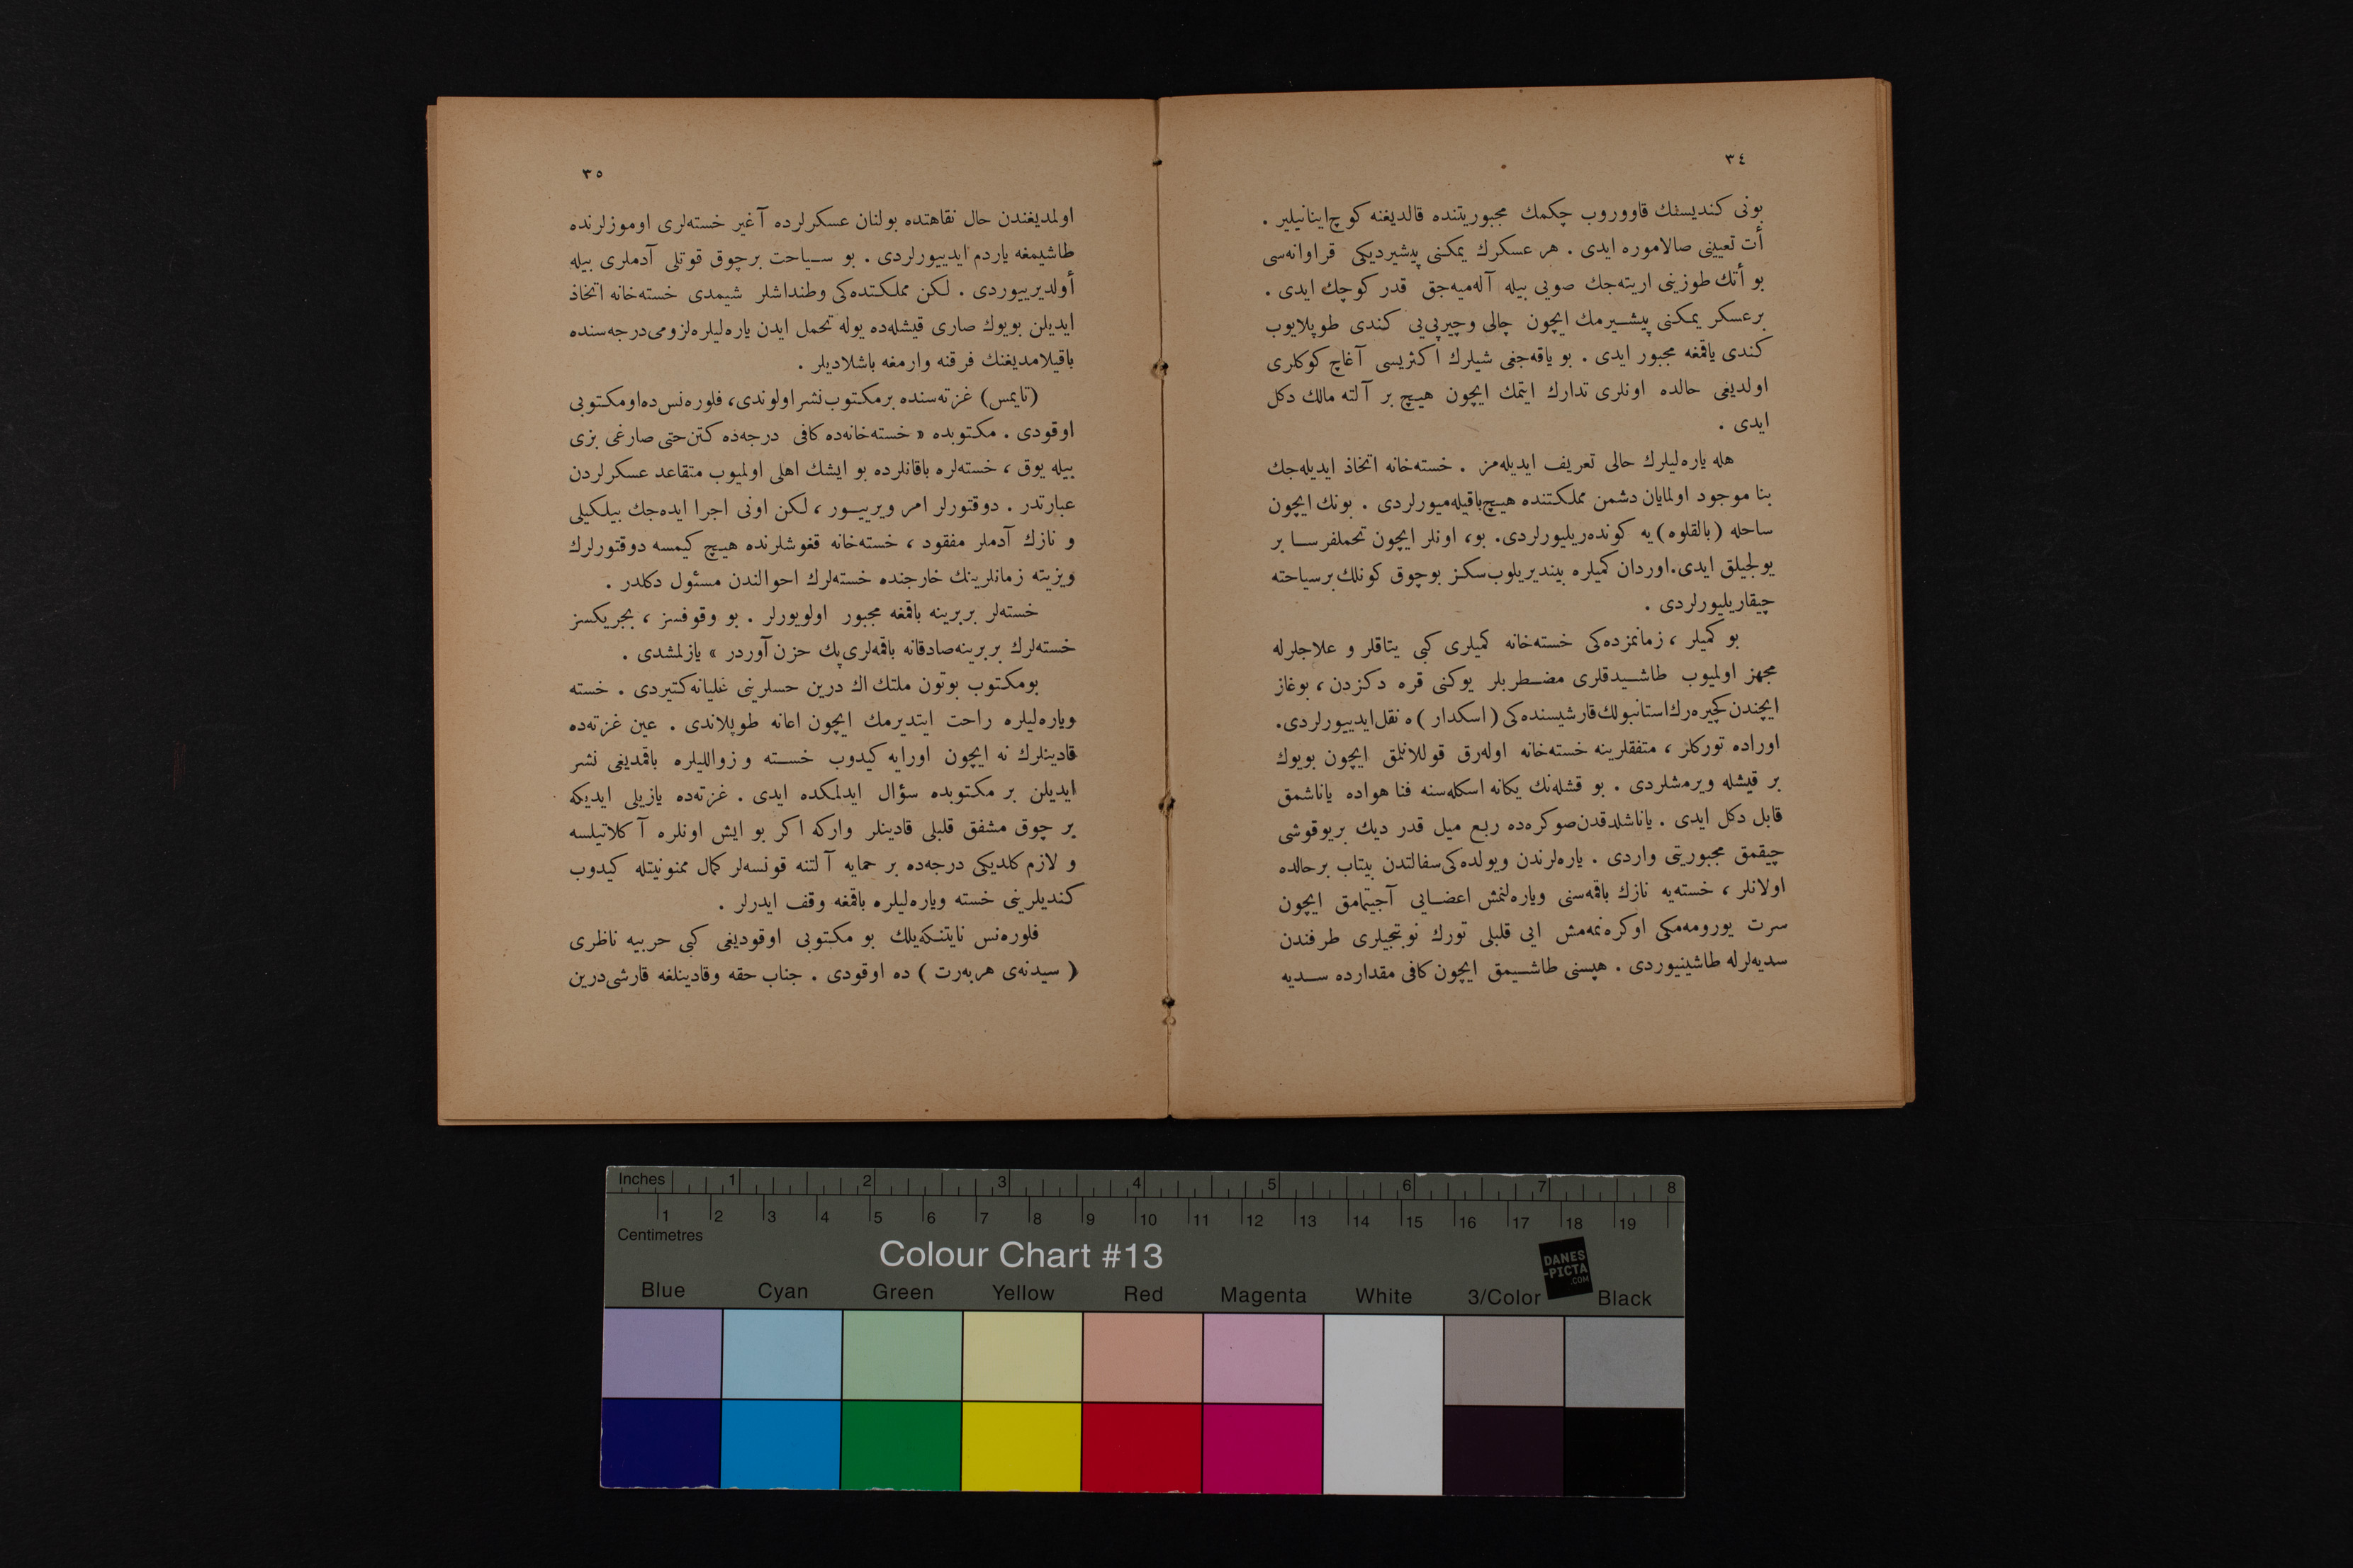 ٣٤
بونی كنديسنك قاووروب چكمك مجبوريتنده قالديغنه كوچ اينانيلير .
أت تعيينی صالاموره ايدی . هر عسكرك يمكنی پيشيرديكی قراوانه‌سی
بو أتك طوزينی اريته‌جك صويی بيله آله‌ميه‌جق قدر كوچك ايدی .
برعسكر يمكنی پيشيرمك ايچون چالی وچيرپی‌يی كندی طوپلايوب
كندی ياقمغه مجبور ايدی . بو ياقه‌جغی شيلرك اكثريسی آغاچ كوكلری
اولديغی حالده اونلری تدارك ايتمك ايچون هيچ بر آلته مالك دكل
ايدی .
هله ياره‌ليلرك حالی تعريف ايديله‌مز . خسته‌خانه اتخاذ ايديله‌جك
بنا موجود اولمايان دشمن مملكتنده هيچ باقيله‌ميورلردی . بونك ايچون
ساحله (بالقلوه) يه كونده‌ريليورلردی. بو، اونلر ايچون تحملفرسا بر
يولجيلق ايدی. اوردان كميلره بينديريلوب سكز بوچوق كونلك برسياحته
چيقاريليورلردی .
بو كميلر ، زمانمزده‌كی خسته‌خانه كميلری كبی يتاقلر و علاجلرله
مجهز اولميوب طاشيدقلری مضطربلر يوكنی قره دكزدن ، بوغاز
ايچندن كچيره‌رك استانبولك قارشيسنده‌كی (اسكدار) ه نقل ايدييورلردی.
اوراده توركلر ، متفقلرينه خسته‌خانه اوله‌رق قوللانملق ايچون بويوك
بر قيشله ويرمشلردی . بو قشله‌نك يكانه اسكله‌سنه فنا هواده ياناشمق
قابل دكل ايدی . ياناشلدقدن صوكره‌ده ربع ميل قدر ديك بريوقوشی
چيقمق مجبوريتی واردی . ياره‌لرندن ويولده‌كی سفالتدن بيتاب برحالده
اولانلر ، خسته‌يه نازك باقمه‌سنی وياره‌لنمش اعضايی آجيتمامق ايچون
سرت يورومه‌مكی اوكره‌نمه‌مش ايی قلبلی تورك نوبتجيلری طرفندن
سديه‌لرله طاشينيوردی . هپسنی طاشيمق ايچون كافی مقدارده سديه
٣٥
اولمديغندن حال نقاهتده بولنان عسكرلرده آغير خسته‌لری اوموزلرنده
طاشيمغه ياردم ايدييورلردی . بو سياحت برچوق قوتلی آدملری بيله
أولديرييوردی . لكن مملكتده‌كی وطنداشلر شيمدی خسته‌خانه اتخاذ
ايديلن بويوك صاری قيشله‌ده يوله تحمل ايدن ياره‌ليلره لزومی درجه‌سنده
باقيلامديغنك فرقنه وارمغه باشلاديلر .
(تايمس) غزته‌سنده برمكتوب نشر اولوندی، فلوره‌نس ده اومكتوبی
اوقودی . مكتوبده « خسته‌خانه‌ده كافی درجه‌ده كتن حتی صارغی بزی
بيله يوق ، خسته‌لره باقانلرده بو ايشك اهلی اولميوب متقاعد عسكرلردن
عبارتدر . دوقتورلر امر ويرييور ، لكن اونی اجرا ايده‌جك بيلكيلی
و نازك آدملر مفقود ، خسته‌خانه قغوشلرنده هيچ كيمسه دوقتورلرك
ويزيته زمانلرينك خارجنده خسته‌لرك احوالندن مسئول دكلدر .
خسته‌لر بربرينه باقمغه مجبور اولويورلر . بو وقوفسز ، بجريكسز
خسته‌لرك بربرينه صادقانه باقمه‌لری پك حزن آوردر » يازلمشدی .
بومكتوب بوتون ملتك اك درين حسلرينی غليانه كتيردی . خسته
وياره‌ليلره راحت ايتديرمك ايچون اعانه طوپلاندی . عين غزته‌ده
قادينلرك نه ايچون اورايه كيدوب خسته و زوالليلره باقمديغی نشر
ايديلن بر مكتوبده سؤال ايدلمكده ايدی . غزته‌ده يازيلی ايديكه
بر چوق مشفق قلبلی قادينلر واركه اكر بو ايش اونلره آكلاتيلسه
و لازم كلديكی درجه‌ده بر حمايه آلتنه قونسه‌لر كمال ممنونيتله كيدوب
كنديلرينی خسته وياره‌ليلره باقمغه وقف ايدرلر .
فلوره‌نس نايتنكه‌يلك بو مكتوبی اوقوديغی كبی حربيه ناظری
( سيدنه‌ی هربه‌رت ) ده اوقودی . جناب حقه وقادينلغه قارشی درين
Inches 1 2 3 4 5 6 7 8
1 2 3 4 5 6 7 8 9 10 11 12 13 14 15 16 17 18 19
Centimetres
Colour Chart #13
DANES
-PICTA
.COM
Blue Cyan Green Yellow Red Magenta White 3/Color Black